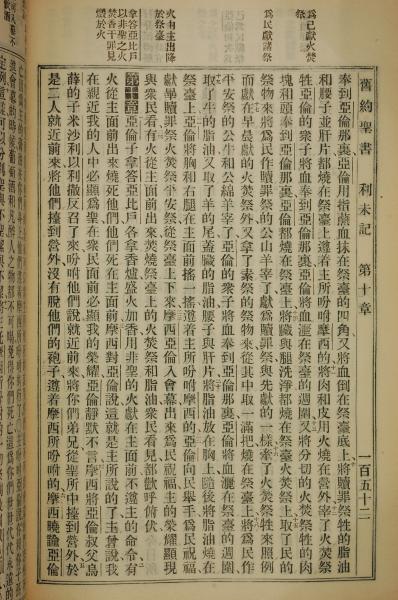 舊約聖書 利未記 第十章 一百五十二
爲己獻火焚祭
爲民獻諸祭
火由主出降於祭臺
拿答亞比戶以非聖之火焚香干罪見燬於火
奉到亞倫那裏亞倫用指蘸血抹在祭臺的四角又將血倒在祭臺底上將贖罪祭牲的脂油
和腰子並肝片都燒在祭臺上遵着主所吩咐摩西的將肉和皮用火燒在營外宰了火焚祭
牲亞倫的衆子將血奉到亞倫那裏亞倫將血灑在祭臺的週圍又將分切的火焚祭牲的肉
塊和頭奉到亞倫那裏亞倫都燒在祭臺上將臟與腿洗淨都燒在祭臺火焚祭上取了民的
祭物來將爲民作贖罪祭的公山羊宰了獻爲贖罪祭與先獻的一樣牽了火焚祭來照例
而獻在早晨獻的火焚祭外又拿了素祭的祭物來從其中取一滿把燒在祭臺上將爲民作
平安祭的公牛和公綿羊宰了亞倫的衆子將血奉到亞倫那裏亞倫將血灑在祭臺的週圍
取了牛的脂油又取了羊的尾蓋臟的脂油腰子與肝片將脂油放在胸上隨後將脂油燒在
祭臺上亞倫將胸和右腿在主面前搖一搖遵着主所吩咐摩西的亞倫向民舉手爲民祝福
獻畢贖罪祭火焚祭平安祭從祭臺上下來摩西亞倫入會幕出來爲民祝福主的榮耀顯現
與衆民看有火從主面前出來焚燒祭臺上的火焚祭和脂油衆民看見都歡呼俯伏
第十章亞倫子拿答亞比戶各拿香爐盛火加香用非聖的火獻在主面前不遵主的命令有
火從主面前出來燒死他們他們死在主面前摩西對亞倫說這就是主所說的了主曾說我
在親近我的人中必顯爲聖在衆民面前必顯我的榮耀亞倫靜默不言摩西將亞倫叔父烏
薛的子米沙利以利撒反召了來吩咐他們說就近前來將你們弟兄從聖所中擡到營外於
是二人就近前來將他們擡到營外沒有脫他們的袍子遵着摩西所吩咐的摩西曉諭亞倫